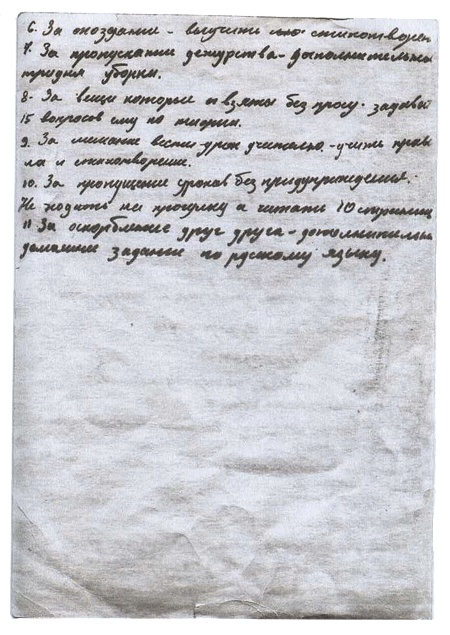 6. За опоздание - выучить стихотворен
7. За пропускании дежурства - дополнительны
тридня уборки.
8. За вещи которые взяты без просу. задават
15 вопросов ему по теории.
9. За мешание вести урок учителю - учить прави
ла и стихотворение.
10. За пропущение уроков без придупреждения.
Не ходить на прогулку и читать 10 страниц
11 За оскорбление друг друга - дополнительн
домашнее задание по русскому языку.